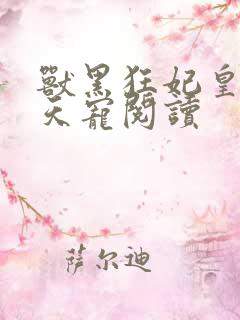 獸黑狂妃皇
天寵閱讀
萨尔迪